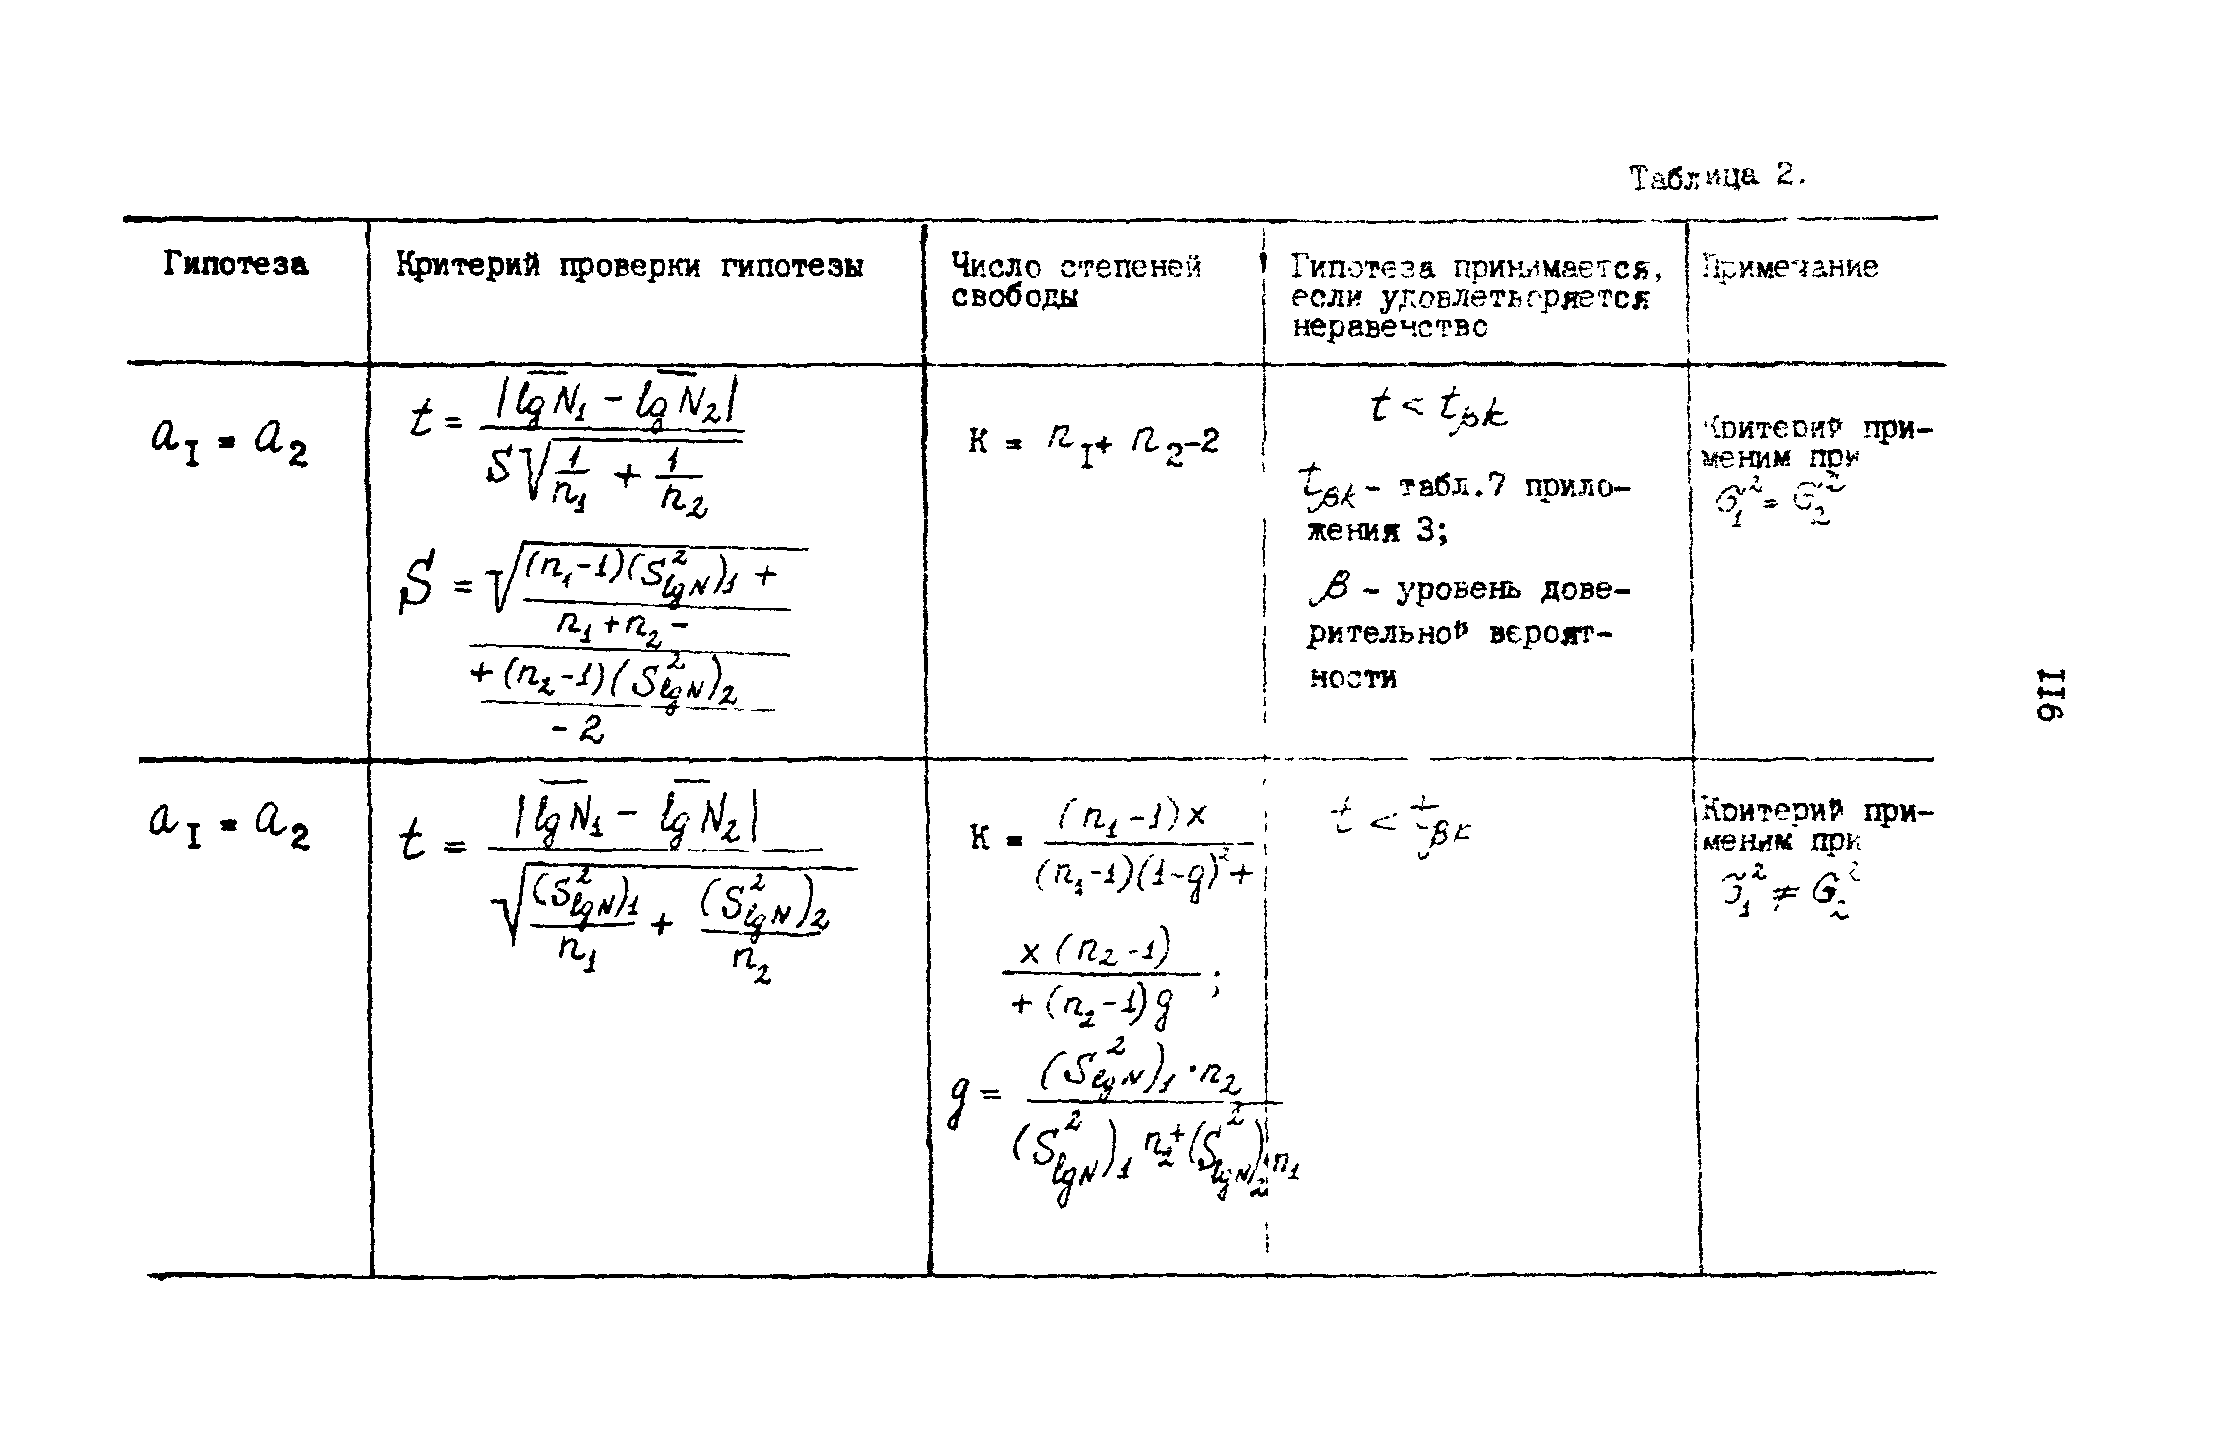 Таблица 2.
Гипотеза
Критерий проверки гипотезы
Число степеней
свободы
Гипотеза принимается,
если удовлетворяется
неравенство
Примечание
a_I = a_2
t = |\overline{lg N}_1 - \overline{lg N}_2| / S√(1/n_1 + 1/n_2)
S = √ (n_1-1)(S²_{lgN})_1 +
n_1 + n_2 -
+ (n_2-1)(S²_{lgN})_2
- 2
К = n_I + n_2 -2
t < t_{βk}
t_{βk} - табл.7 прило-
жения 3;
β - уровень дове-
рительной вероят-
ности
Критерий при-
меним при
σ_1² = σ_2²
a_I = a_2
t = |\overline{lg N}_1 - \overline{lg N}_2| / √((S²_{lgN})_1/n_1 + (S²_{lgN})_2/n_2)
К = (n_1-1) x
(n_1-1)(1-g)² +
x (n_2-1)
+ (n_2-1) g ;
g = (S²_{lgN})_1 · n_2
(S²_{lgN})_1 n_2 + (S²_{lgN})_2 · n_1
t < t_{βk}
Критерий при-
меним при
σ_1² ≠ σ_2²
II6